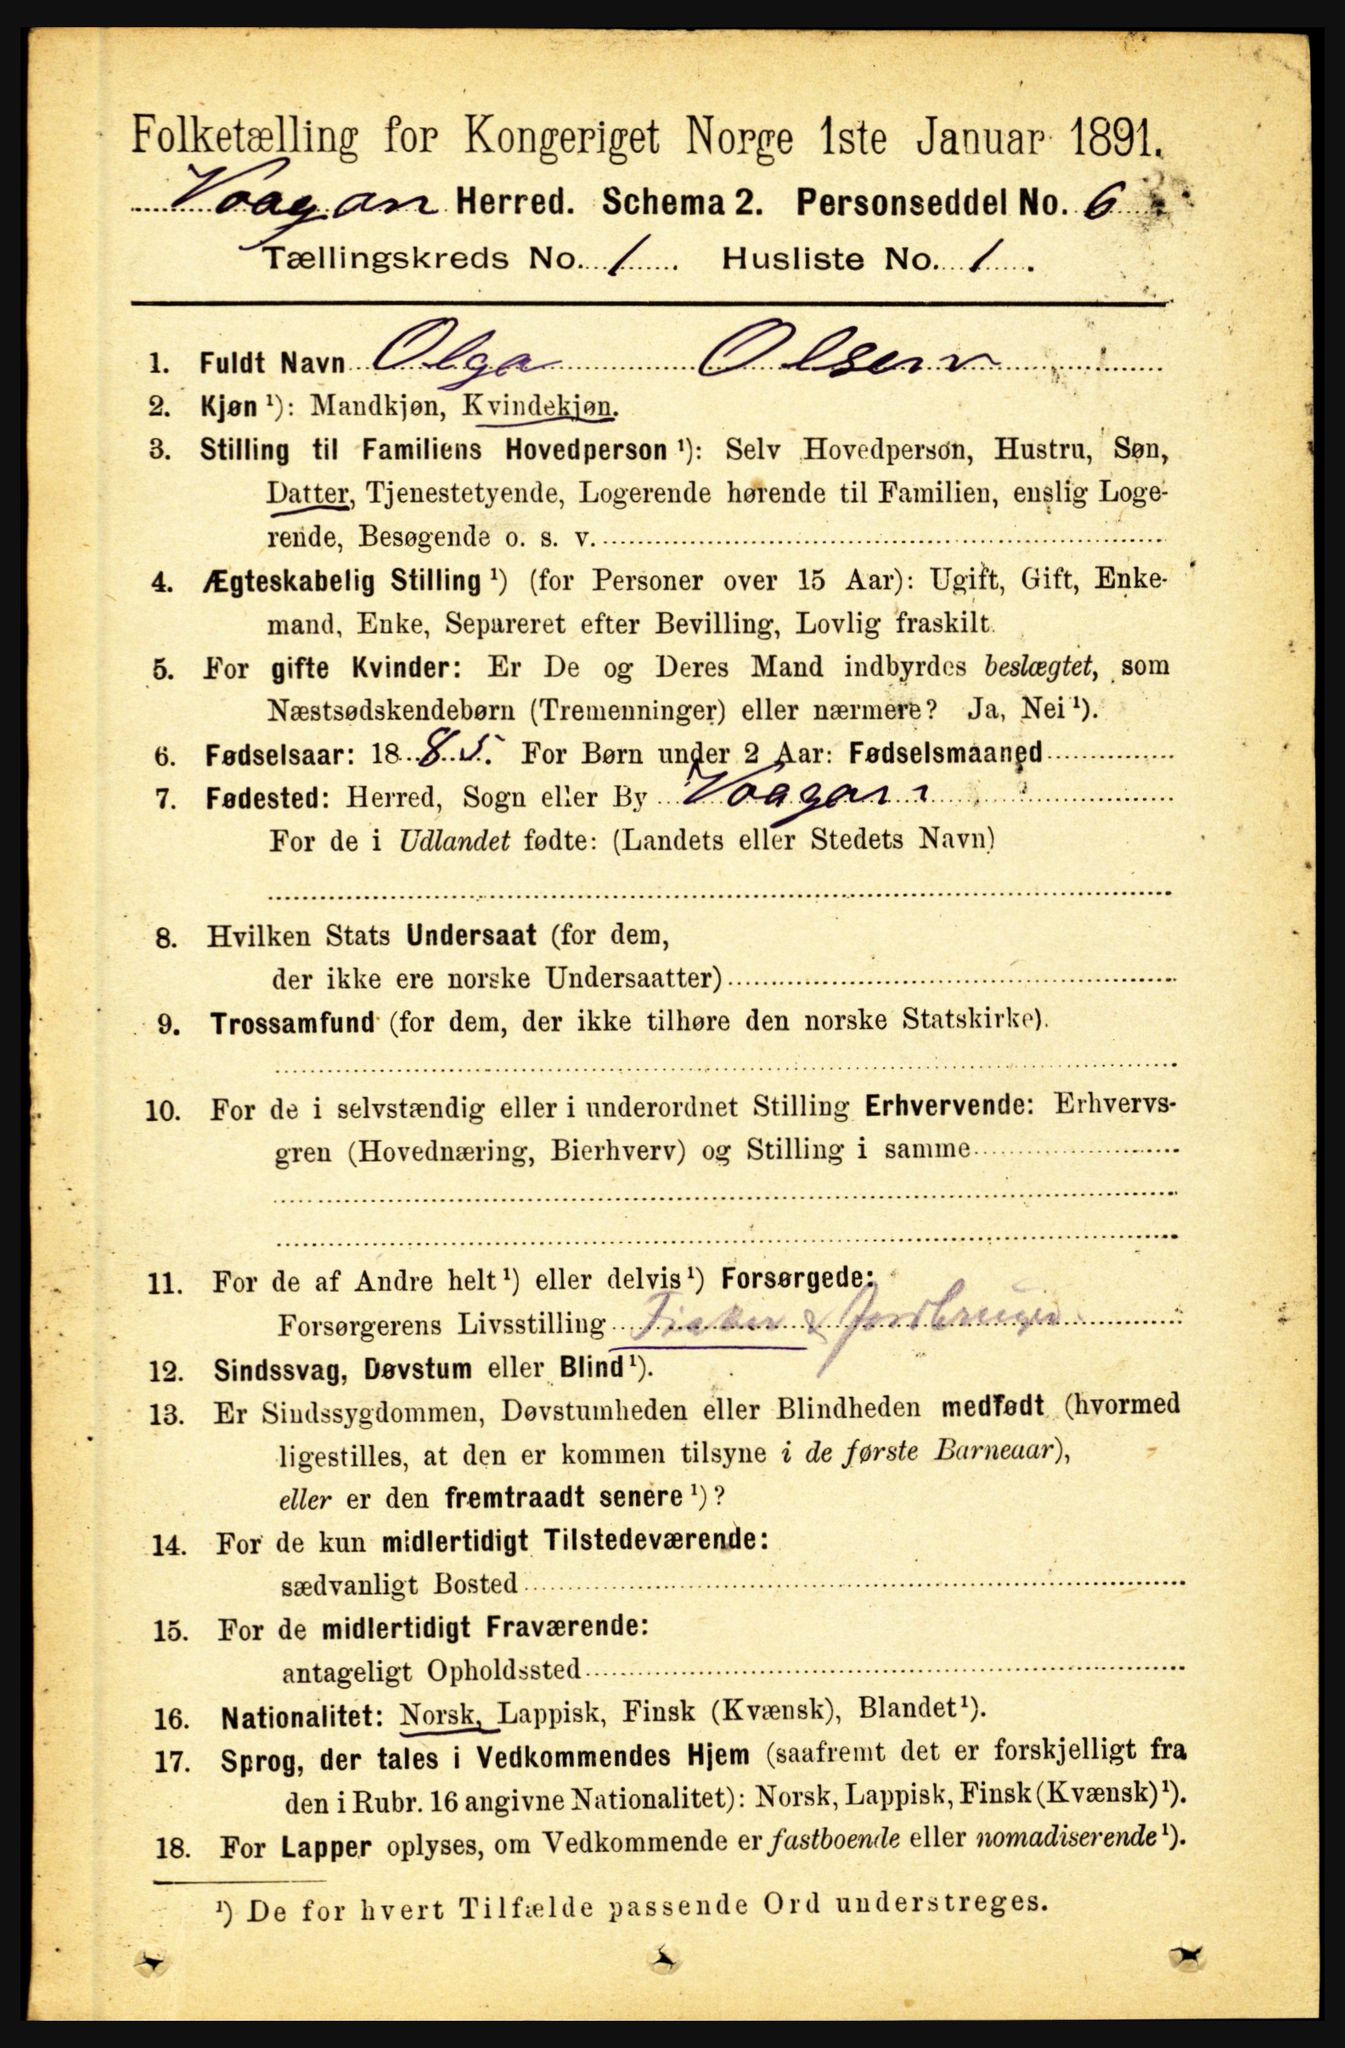 Folketælling for Kongeriget Norge 1ste Januar 1891.
Vaagan Herred. Schema 2. Personseddel No. 6
Tællingskreds No. 1 Husliste No. 1.
1. Fuldt Navn Olga Olsen
2. Kjøn ¹): Mandkjøn, Kvindekjøn.
3. Stilling til Familiens Hovedperson ¹): Selv Hovedperson, Hustru, Søn,
Datter, Tjenestetyende, Logerende hørende til Familien, enslig Loge-
rende, Besøgende o. s. v.
4. Ægteskabelig Stilling ¹) (for Personer over 15 Aar): Ugift, Gift, Enke-
mand, Enke, Separeret efter Bevilling, Lovlig fraskilt.
5. For gifte Kvinder: Er De og Deres Mand indbyrdes beslægtet, som
Næstsødskendebørn (Tremenninger) eller nærmere? Ja, Nei ¹).
6. Fødselsaar: 1885. For Børn under 2 Aar: Fødselsmaaned
7. Fødested: Herred, Sogn eller By Vaagan
For de i Udlandet fødte: (Landets eller Stedets Navn)
8. Hvilken Stats Undersaat (for dem,
der ikke ere norske Undersaatter)
9. Trossamfund (for dem, der ikke tilhøre den norske Statskirke).
10. For de i selvstændig eller i underordnet Stilling Erhvervende: Erhvervs-
gren (Hovednæring, Bierhverv) og Stilling i samme
11. For de af Andre helt ¹) eller delvis ¹) Forsørgede:
Forsørgerens Livsstilling Fisker & Jordbruger
12. Sindssvag, Døvstum eller Blind ¹).
13. Er Sindssygdommen, Døvstumheden eller Blindheden medfødt (hvormed
ligestilles, at den er kommen tilsyne i de første Barneaar),
eller er den fremtraadt senere ¹)?
14. For de kun midlertidigt Tilstedeværende:
sædvanligt Bosted
15. For de midlertidigt Fraværende:
antageligt Opholdssted
16. Nationalitet: Norsk, Lappisk, Finsk (Kvænsk), Blandet ¹).
17. Sprog, der tales i Vedkommendes Hjem (saafremt det er forskjelligt fra
den i Rubr. 16 angivne Nationalitet): Norsk, Lappisk, Finsk (Kvænsk) ¹).
18. For Lapper oplyses, om Vedkommende er fastboende eller nomadiserende ¹).
¹) De for hvert Tilfælde passende Ord understreges.